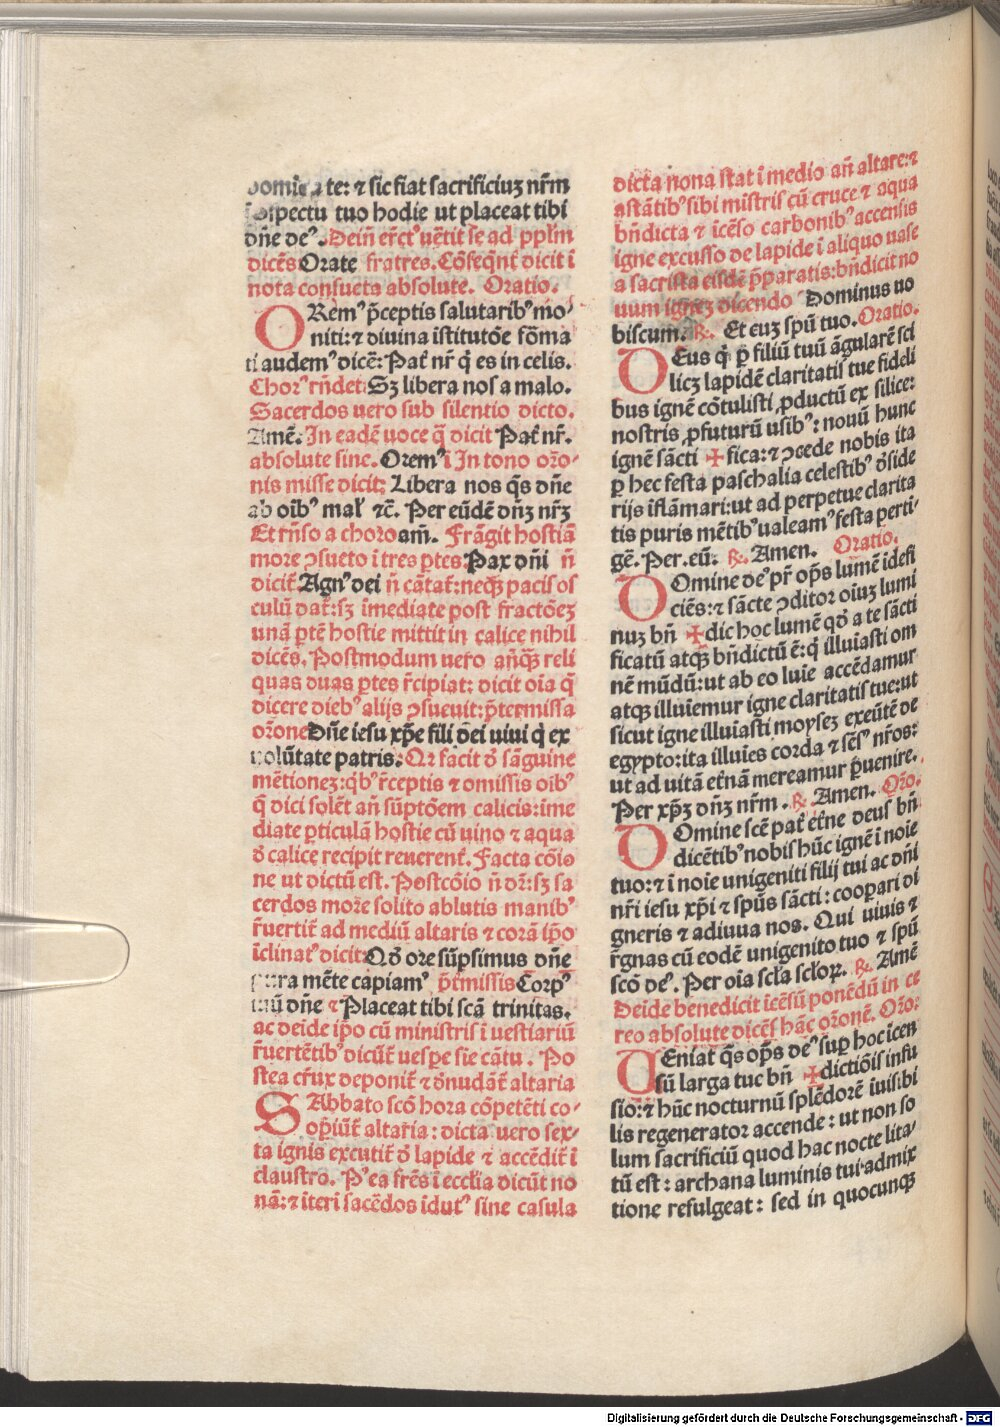 te: ⁊ sic fiat sacrificiuȝ nr̄m
ꝯspectu tuo hodie ut placeat tibi
dn̄e de⁹. Dein̄ er̄ct⁹ ue̅tit se ad pplm̄
dice̅s Orate fratres. Co̅seqn̄t dicit i̅
nota consueta absolute. Oratio.
ORem⁹ p̄ceptis salutarib⁹ mo-
niti: ⁊ diuina i̅stituto̅e fo̅ma
ti audem⁹ dice̅: Pat̄ nr̄ q̄ es in celis.
Chor⁹ rn̄det: Sȝ libera nos a malo.
Sacerdos uero sub silentio dicto.
Ame̅. In eade̅ uoce q̄ dicit Pat̄ nr̄.
absolute sine. Orem⁹ i̅ In tono or̄o-
nis misse dicit: Libera nos q̄s dn̄e
ab oi̅b⁹ mal̄ ⁊c̄. Per eu̅de̅ dn̄ȝ nr̄ȝ
Et rn̄so a choro am̄. Fra̅git hostia̅
more ꝯsueto i̅ tres ꝑtes Pax dn̄i n̄
dicit̄ Agn⁹ dei n̄ ca̅tat̄: neqȝ pacis os
culu̅ dat̄: sȝ i̅mediate post fracto̅eȝ
una̅ ꝑte̅ hostie mittit in calice nihil
dice̅s. Postmodum uero an̄qȝ reli
quas duas ꝑtes r̄cipiat: dicit oi̅a q̄
dicere dieb⁹ alijs ꝯsueuit: p̄termissa
or̄one Dn̄e iesu xp̄e fili dei uiui q̄ ex
uolu̅tate patris. Nr̄ facit d̄ sa̅guine
me̅tioneȝ: qb⁹ r̄ceptis ⁊ omissis oi̅b⁹
q̄ dici sole̅t an̄ su̅pto̅em calicis: i̅me
diate ꝑticula̅ hostie cu̅ uino ⁊ aqua
d̄ calice recipit reuerent̄. Facta co̅io
ne ut dictu̅ est. Postco̅io n̄ dr̄: sȝ sa
cerdos more solito ablutis manib⁹
r̄uertit̄ ad mediu̅ altaris ⁊ cora̅ ip̄o
i̅clinat⁹ dicit: Qd̄ ore su̅psimus dn̄e
pura me̅te capiam⁹ p̄t̄missis Corp⁹
tuu̅ dn̄e ⁊ Placeat tibi sc̄a trinitas.
ac deide ip̄o cu̅ ministris i̅ uestiariu̅
r̄uerte̅tib⁹ dicu̅t̄ uesꝑe sie ca̅tu. Po
stea cr̄ux deponit̄ ⁊ d̄nuda̅t̄ altaria
SAbbato sc̄o hora co̅pete̅ti co-
oꝑiu̅t̄ altaria: dicta uero sex-
ta ignis excutit̄ d̄ lapide ⁊ acce̅dit̄ i̅
claustro. P⁹ ea fr̄es i̅ ecclia dicu̅t no
na̅: ⁊ iteri sace̅dos idut⁹ sine casula
dicta nona stat i̅ medio an̄ altare: ⁊
asta̅tib⁹ sibi mi̅stris cu̅ cruce ⁊ aqua
bn̄dicta ⁊ ice̅so carbonib⁹ accensis
igne excusso de lapide i̅ aliquo uase
a sacrista eisde̅ p̄paratis: bn̄dicit no
uum igneȝ dicendo Dominus uo
biscum. ℟. Et cuȝ spu̅ tuo. Oratio.
DEus q̄ ꝑ filiu̅ tuu̅ a̅gulare̅ sci
licȝ lapide̅ claritatis tue fideli
bus igne̅ co̅tulisti ꝓductu̅ ex silice:
nostris ꝓfuturu̅ usib⁹: nouu̅ hunc
igne̅ sa̅cti ✠ fica: ⁊ ꝯcede nobis ita
ꝑ hec festa paschalia celestib⁹ d̄side
rijs i̅fla̅mari: ut ad perpetue clarita
tis puris me̅tib⁹ ualeam⁹ festa perti-
ge̅. Per. eu̅. ℟. Amen. Oratio.
DOmine de⁹ pr̄ op̄s lume̅ idefi
cie̅s: ⁊ sa̅cte ꝯditor oi̅uȝ lumi
nuȝ bn̄ ✠ dic hoc lume̅ qd̄ a te sa̅cti
ficatu̅ atqȝ bn̄dictu̅ e̅: q̄ illui̅asti om
ne̅ mu̅du̅: ut ab eo lui̅e acce̅damur
atqȝ illui̅emur igne claritatis tue: ut
sicut igne illui̅asti moyseȝ exeu̅te̅ de
egypto: ita illui̅es corda ⁊ se̅s⁹ nr̄os:
ut ad uita̅ et̄na̅ mereamur p̄uenire.
Per xp̄ȝ dn̄ȝ nr̄m. ℟. Amen. Or̄o.
DOmine sc̄e pat̄ et̄ne deus bn̄
dice̅tib⁹ nobis hu̅c igne̅ i̅ noi̅e
tuo: ⁊ i̅ noi̅e unigeniti filij tui ac dn̄i
nr̄i iesu xp̄i ⁊ spu̅s sa̅cti: cooꝑari di
gneris ⁊ adiuua nos. Qui uiuis ⁊
r̄gnas cu̅ eode̅ unigenito tuo ⁊ spu̅
sc̄o de⁹. Per oi̅a scl̄a scl̄oꝝ. ℟. Ame̅
Deide benedicit ice̅su̅ pone̅du̅ in ce
reo absolute dice̅s ha̅c or̄one̅. Or̄o:
VEniat q̄s op̄s de⁹ suꝑ hoc icen
su̅ larga tue bn̄ ✠ dictio̅is i̅fu
sio: ⁊ hu̅c nocturnu̅ sple̅dore̅ iuisibi
lis regenerator accende: ut non so
lum sacrificiu̅ quod hac nocte lita-
tu̅ est: archana luminis tui admix
tione refulgeat: sed in quocunqȝ
Digitalisierung gefördert durch die Deutsche Forschungsgemeinschaft - DFG